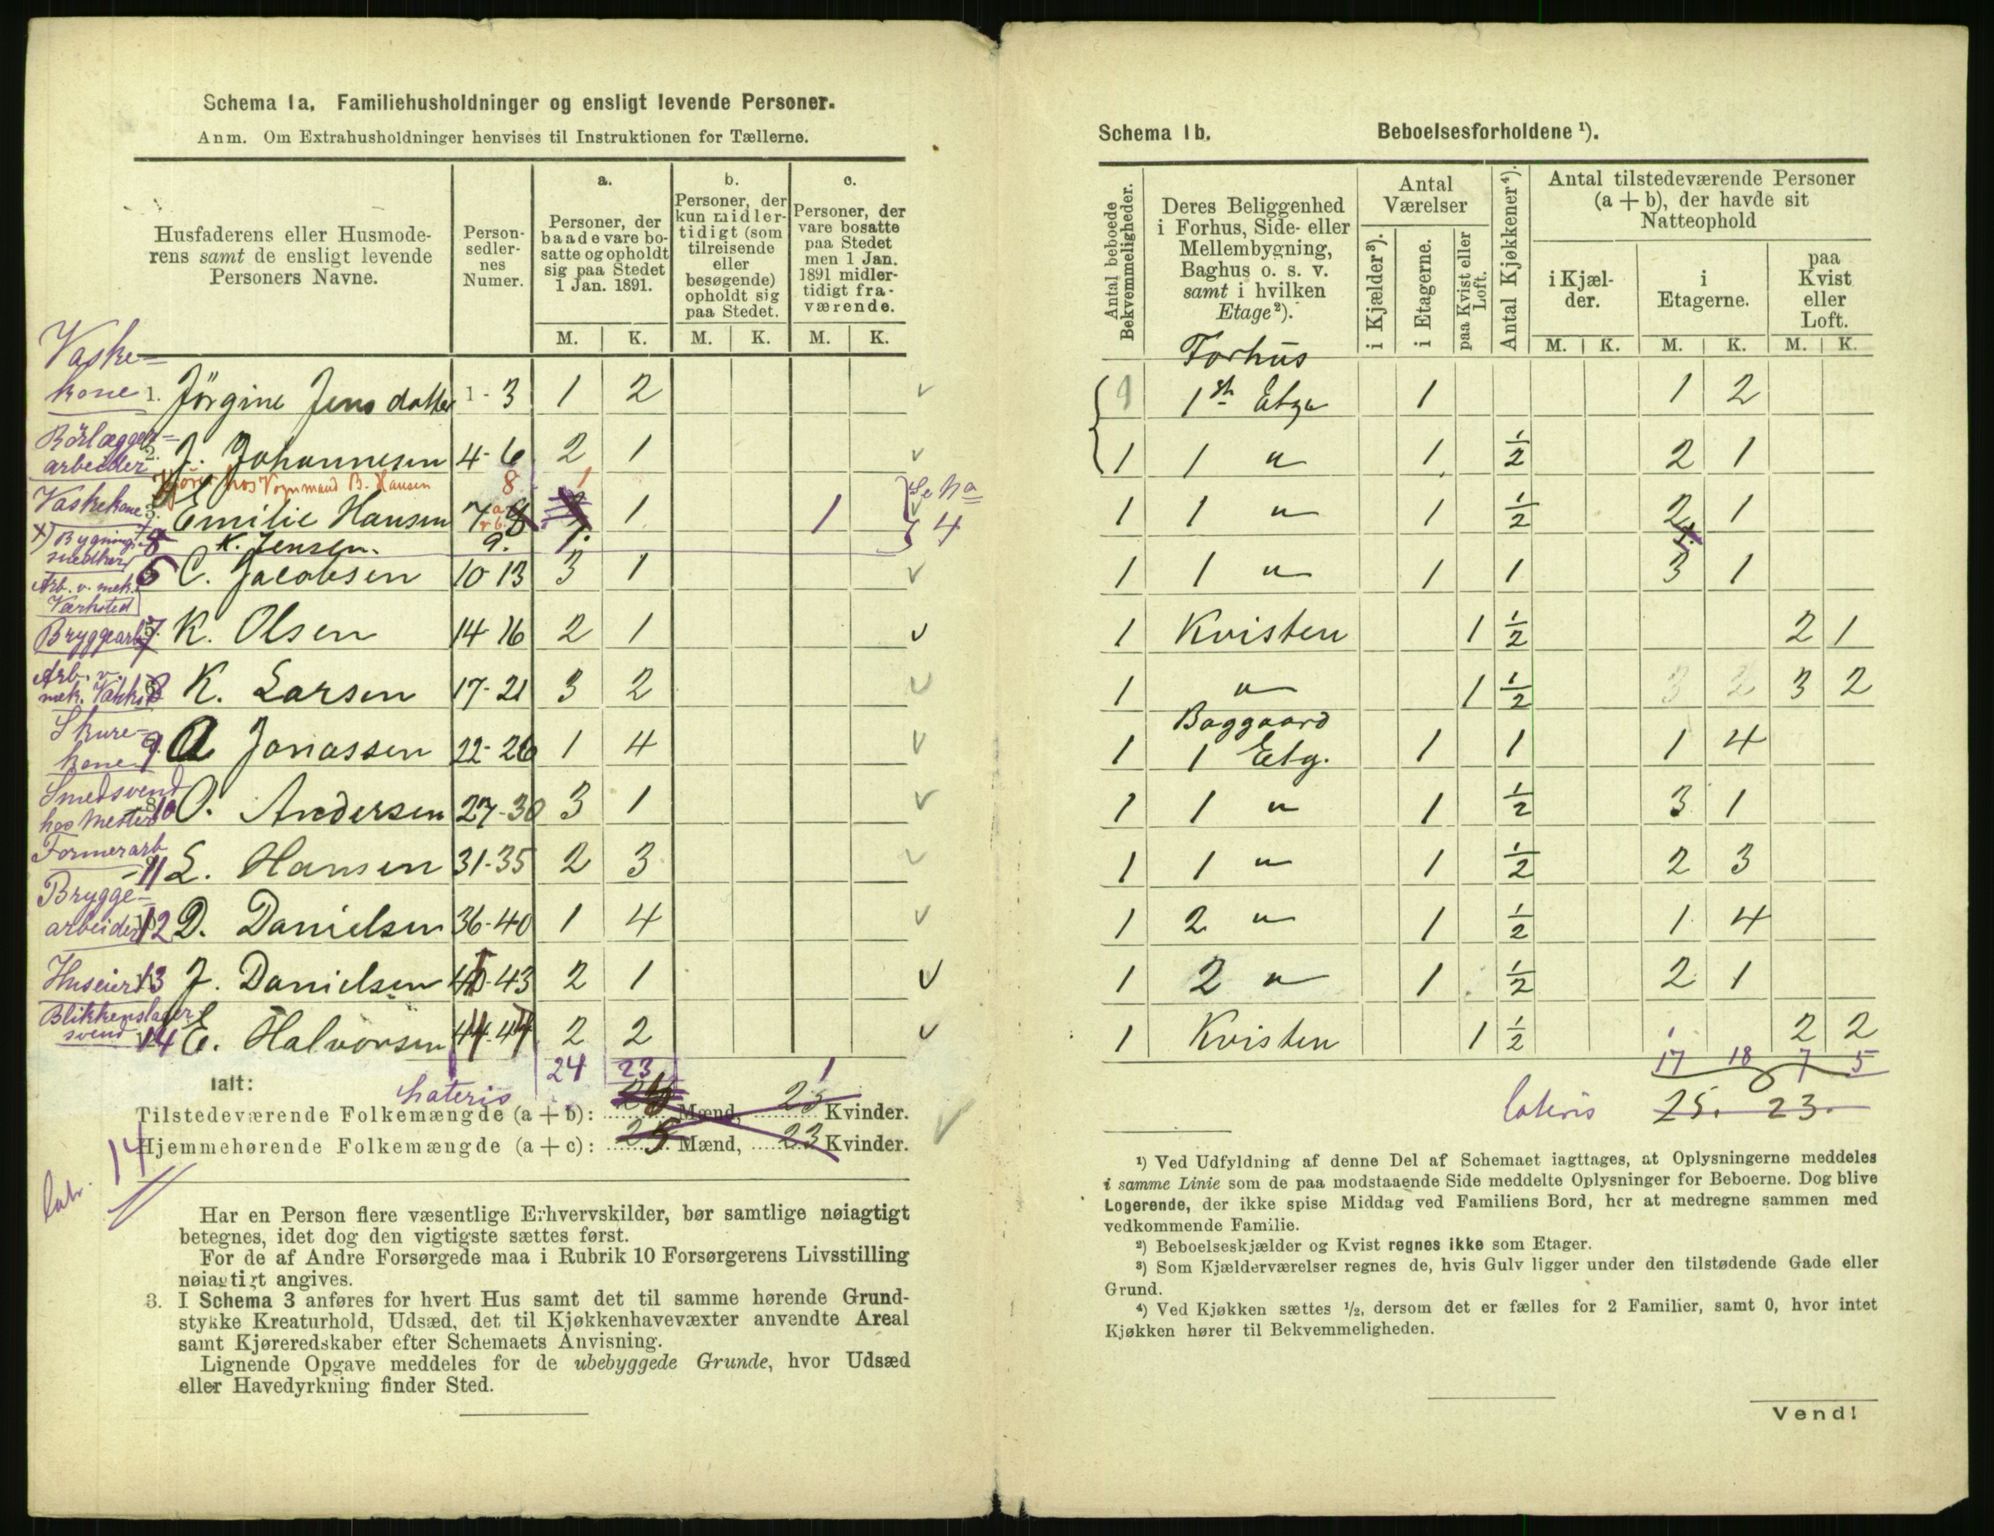 Schema 1a. Familiehusholdninger og ensligt levende Personer.
Anm. Om Extrahusholdninger henvises til Instruktionen for Tællerne.
Husfaderens eller Husmode-
rens samt de ensligt levende
Personers Navne.
Person-
sedler-
nes
Numer.
a.
Personer, der
baade vare bo-
satte og opholdt
sig paa Stedet
1 Jan. 1891.
b.
Personer, der
kun midler-
tidigt (som
tilreisende
eller
besøgende)
opholdt sig
paa Stedet.
c.
Personer, der
vare bosatte
paa Stedet
men 1 Jan.
1891 midler-
tidigt fra-
værende.
M. K. M. K. M. K.
Vaske-
kone 1. Jörgine Jensdatter 1 - 3 1 2
Rörlægger-
arbeider 2. J. Johannesen 4-6 2 1
Kjører hos Vognmand B. Hansen 8 1
Vaskekone 3. Emilie Hansen 7 8 1 1
Se No 4
Bygnings-
snedker K. Jensen. 9. 1.
6 C. Jacobsen 10 13 3 1
Arb. v. mek.
Værksted
Bryggearb. 7 K. Olsen 14 16 2 1
Arb. v.
mek. 8 K. Larsen 17-21 3 2
Skure-
kone 9. A Jonassen 22-26 1 4
Smedsvend
hos Mester 10 O. Andersen 27-30 3 1
Formerarb
11 L. Hansen 31-35 2 3
Brygge-
arbeider 12 D. Danielsen 36-40 1 4
Huseier 13 J. Danielsen 41-43 2 1
Blikkenslager
svend 14 E. Halvorsen 44-47 2 2
24 23 1
Ialt:
Lateris
Tilstedeværende Folkemængde (a + b): Mænd, 23 Kvinder.
Hjemmehørende Folkemængde (a + c): 25 Mænd, 23 Kvinder.
lat. 14
Har en Person flere væsentlige Erhvervskilder, bør samtlige nøiagtigt
betegnes, idet dog den vigtigste sættes først.
For de af Andre Forsørgede maa i Rubrik 10 Forsørgerens Livsstilling
nøiagtigt angives.
3. I Schema 3 anføres for hvert Hus samt det til samme hørende Grund-
stykke Kreaturhold, Udsæd, det til Kjøkkenhavevæxter anvendte Areal
samt Kjøreredskaber efter Schemaets Anvisning.
Lignende Opgave meddeles for de ubebyggede Grunde, hvor Udsæd
eller Havedyrkning finder Sted.
Schema 1b. Beboelsesforholdene ¹).
Antal beboede
Bekvemmeligheder.
Deres Beliggenhed
i Forhus, Side- eller
Mellembygning,
Baghus o. s. v.
samt i hvilken
Etage²).
Antal
Værelser
i Kjælder³).
i Etagerne.
paa Kvist eller
Loft.
Antal Kjøkkener⁴).
Antal tilstedeværende Personer
(a + b), der havde sit
Natteophold
i Kjæl-
der.
i
Etagerne.
paa
Kvist
eller
Loft.
M. K. M. K. M. K.
Forhus
1 1ste Etge 1 1 2
1 1 " 1 ½ 2 1
1 1 " 1 ½ 2 1
1.
1 1 " 1 1 3 1
1 Kvisten 1 ½ 2 1
1 " 1 ½ 3 2 3 2
Baggaard
1 1 Etg. 1 1 1 4
1 1 " 1 ½ 3 1
1 1 " 1 ½ 2 3
1 2 " 1 ½ 1 4
1 2 " 1 ½ 2 1
1 Kvisten 1 ½ 2 2
17 18 7 5
lateris 25. 23.
¹) Ved Udfyldning af denne Del af Schemaet iagttages, at Oplysningerne meddeles
i samme Linie som de paa modstaaende Side meddelte Oplysninger for Beboerne. Dog blive
Logerende, der ikke spise Middag ved Familiens Bord, her at medregne sammen med
vedkommende Familie.
²) Beboelseskjælder og Kvist regnes ikke som Etager.
³) Som Kjælderværelser regnes de, hvis Gulv ligger under den tilstødende Gade eller
Grund.
⁴) Ved Kjøkken sættes ½, dersom det er fælles for 2 Familier, samt 0, hvor intet
Kjøkken hører til Bekvemmeligheden.
Vend!